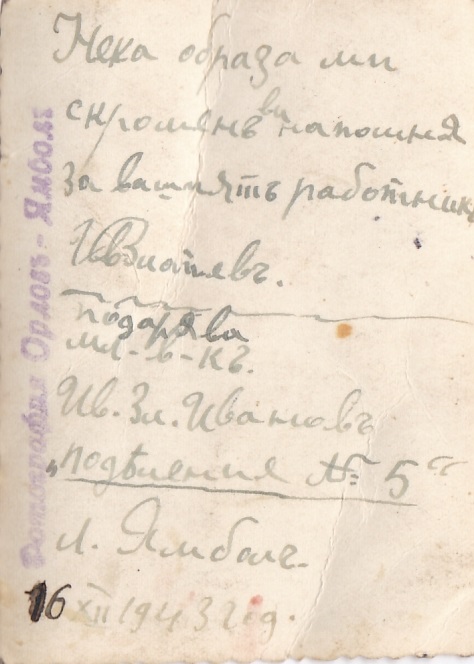 Нека образа ми
скроменъ ви напомня
за вашиятъ работникъ
Ив Златевъ.
подарява
мл.-в-къ.
Ив. Зл. Ивановъ
„подѣления № 5“
л. Ямболъ.
16 XII 1943 год.
Фотография Орловъ - Ямболъ